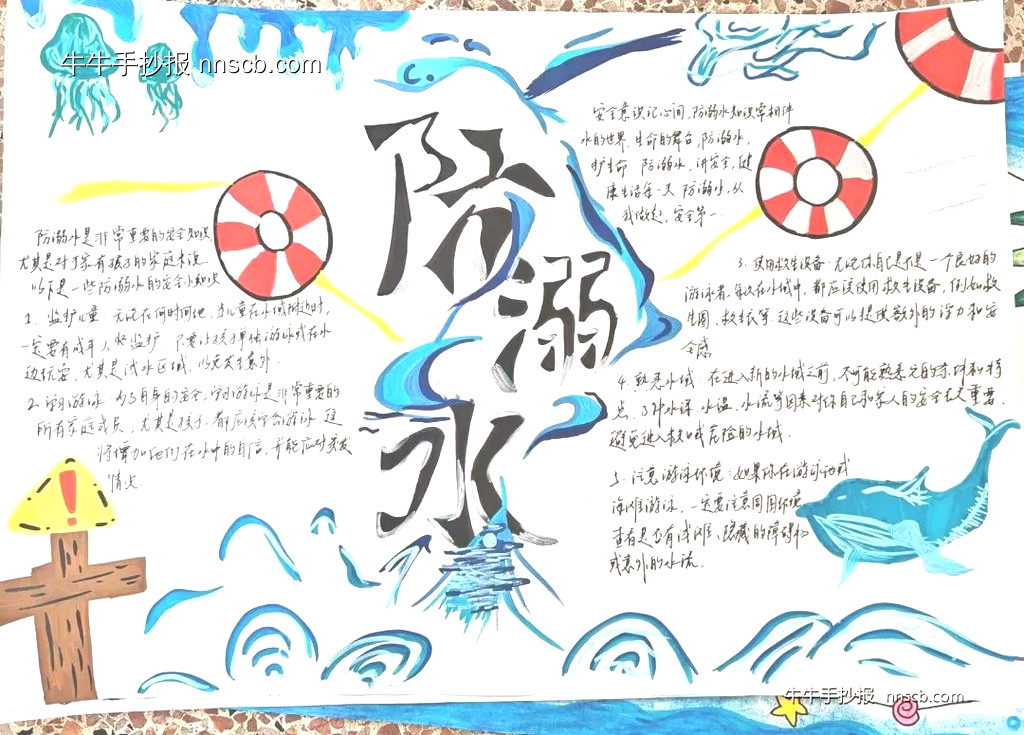 牛牛手抄报 nnscb.com
防溺水
防溺水是非常重要的安全知识,
尤其是对于家有孩子的家庭来说
以下是一些防溺水的安全小知识
1、监护儿童:无论在何时何地,当儿童在水域附近时,
一定要有成年人 监护 不要让孩子单独游泳或在水
边玩耍,尤其是浅水区域,以免发生意外.
2、学习游泳 为了自身的安全,学习游泳是非常重要的
所有家庭成员,尤其是孩子,都应该学会游泳 这
将增加他们在水中的自信,并能应对突发
情况.
安全意识记心间,防溺水知识常相伴
水的世界,生命的舞台,防溺水,
护生命 防溺水,讲安全,健
康生活每一天 防溺水,从
我做起,安全第一.
3、使用救生设备:无论你自己是不是一个良好的
游泳者,每次在水域中,都应该使用救生设备,例如救
生圈、救生衣等 这些设备可以提供额外的浮力和安
全感
4、熟悉水域 在进入新的水域之前,尽可能熟悉它的环境和特
点,了解水深、水温、水流等因素对你自己和家人的安全至关重要.
避免进入救 或危险的水域.
5、注意游泳环境:如果你在游泳池或
海滩游泳,一定要注意周围环境
查看是否有浅滩、隐藏的障碍物
或意外的水流.
牛牛手抄报 nnscb.com